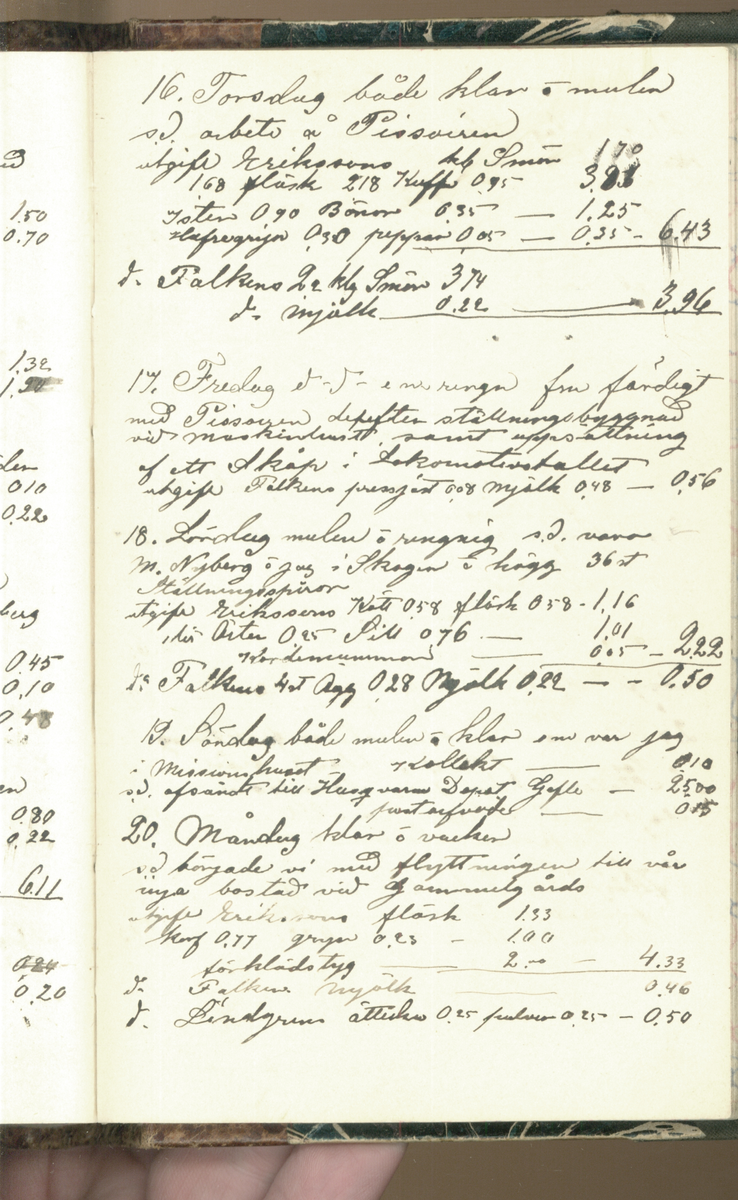 ed
1.50
0.70
1.32
1.50
den
0.10
0.22
berg
0.45
0.10
0.48
en
0.80
0.22
6.11
0.24
0.20
16. Torsdag både klar o mulen
s.d. arbete å Pissoiren
utgift Erikssons kg Smör 1 70
1,68 fläsk 218 Kaffe 0,95 3.23
Ister 0,90 Bönor 0,35 — 1.25
Hafregryn 0,30 peppar 0,05 — 0,35 - 6.43
d- Falkens 2 kg Smör 3 74
d- mjölk 0,22 — 3.96
17. Fredag d- d- em regn fm färdigt
med Pissoiren derefter ställningsbyggnad
vid maskinhuset, samt uppsättning
af ett skåp i Lokomotivstallet
utgift Falkens pressjäst 0,08 mjölk 0,48 — 0,56
18. Lördag mulen o regnig s.d. voro
M. Nyberg o jag i Skogen o högg 36 st
Ställningsspiror
utgift Erikssons Kött 0,58 fläsk 0,58 - 1,16
Ärter 0,25 Sill 0,76 — 1,01
Kardemumma — 0,05 — 2,22
d: Falkens 4 st Ägg 0,28 Mjölk 0,22 — - 0.50
19. Söndag både mulen o klar em var jag
i Missionshuset Kollekt — 0,10
s.d. afsändt till Husqvarna Depot Gefle — 25,00
postarfvode — 0,15
20. Måndag klar o vacker
s.d. började vi med flyttningen till vår
nya bostad vid Gammelgårds
utgift Erikssons fläsk 1.33
korf 0.77 gryn 0.23 - 1.00
förklädstyg — 2.00 — 4.33
d- Falkens Mjölk — 0.46
d. Lindgrens ättika 0.25 pulver 0.25 — 0.50